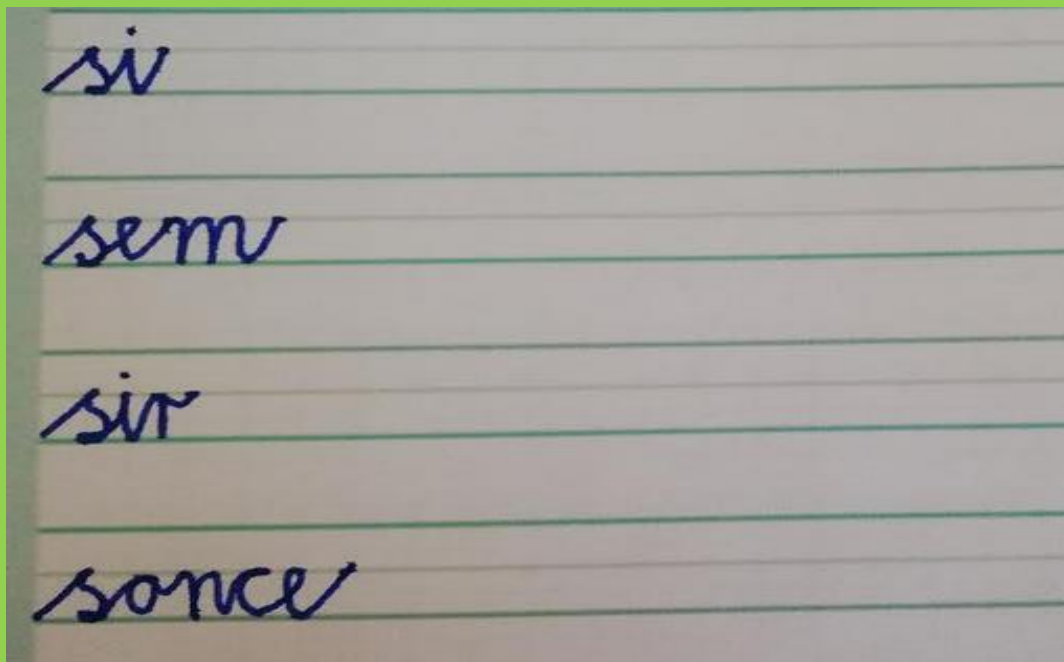 si
sem
sir
sonce